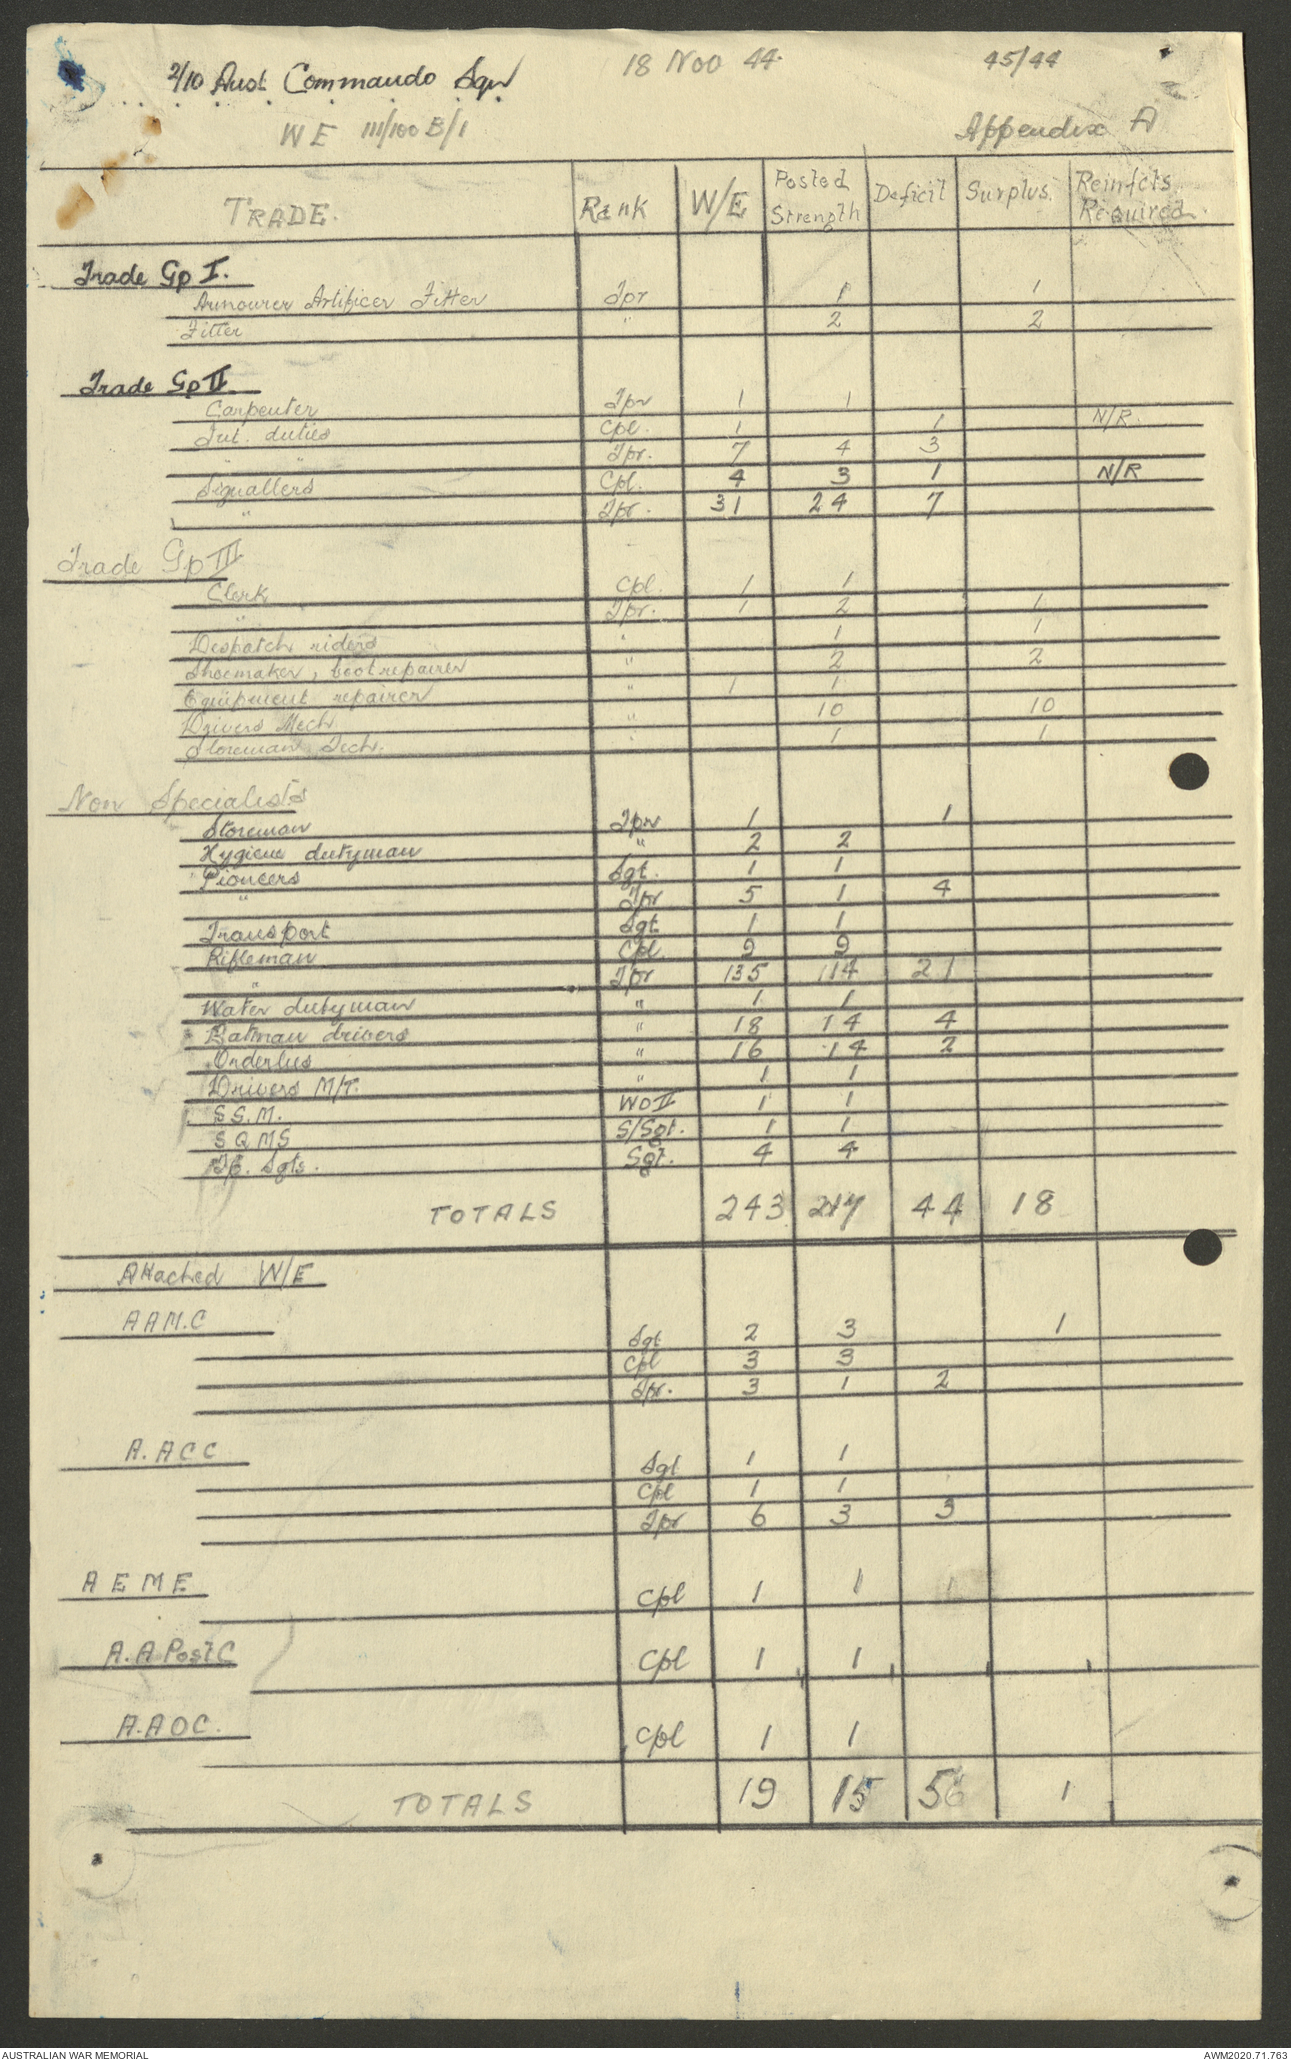 2/10 Aust Commando Sqn 18 Nov 44. 45/44
WE III/100 B/1 Appendix A
TRADE. Rank W/E Posted Strength Deficit Surplus. Reinfcts. Required.
Trade Gp I.
Armourer Artificer Fitter Tpr 1 1
Fitter " 2 2
Trade Gp II
Carpenter Tpr 1 1
Int. duties Cpl. 1 1 N/R.
" " Tpr. 7 4 3
Signallers Cpl. 4 3 1 N/R
" Tpr. 31 24 7
Trade Gp III
Clerk Cpl. 1 1
" Tpr. 1 2 1
Despatch riders " 1 1
Shoemaker, bootrepairer " 2 2
Equipment repairer " 1 1
Drivers Mech " 10 10
Storeman Tech. " 1 1
Non Specialists
Storeman Tpr 1 1
Hygiene dutyman " 2 2
Pioneers Sgt. 1 1
" Tpr 5 1 4
Transport Sgt 1 1
Rifleman Cpl 9 9
" Tpr 135 114 21
Water dutyman " 1 1
Batman drivers " 18 14 4
Orderlies " 16 14 2
Drivers M/T. " 1 1
S S.M. WO II 1 1
S Q M S S/Sgt. 1 1
Tp. Sgts. Sgt. 4 4
TOTALS 243 217 44 18
Attached W/E
A A M.C
Sgt 2 3 1
Cpl 3 3
Tpr. 3 1 2
A. A C C
Sgt 1 1
Cpl 1 1
Tpr 6 3 3
A E M E Cpl 1 1
A. A Post C Cpl 1 1
A. A O C. Cpl 1 1
TOTALS 19 15 5 1
AUSTRALIAN WAR MEMORIAL AWM2020.71.763